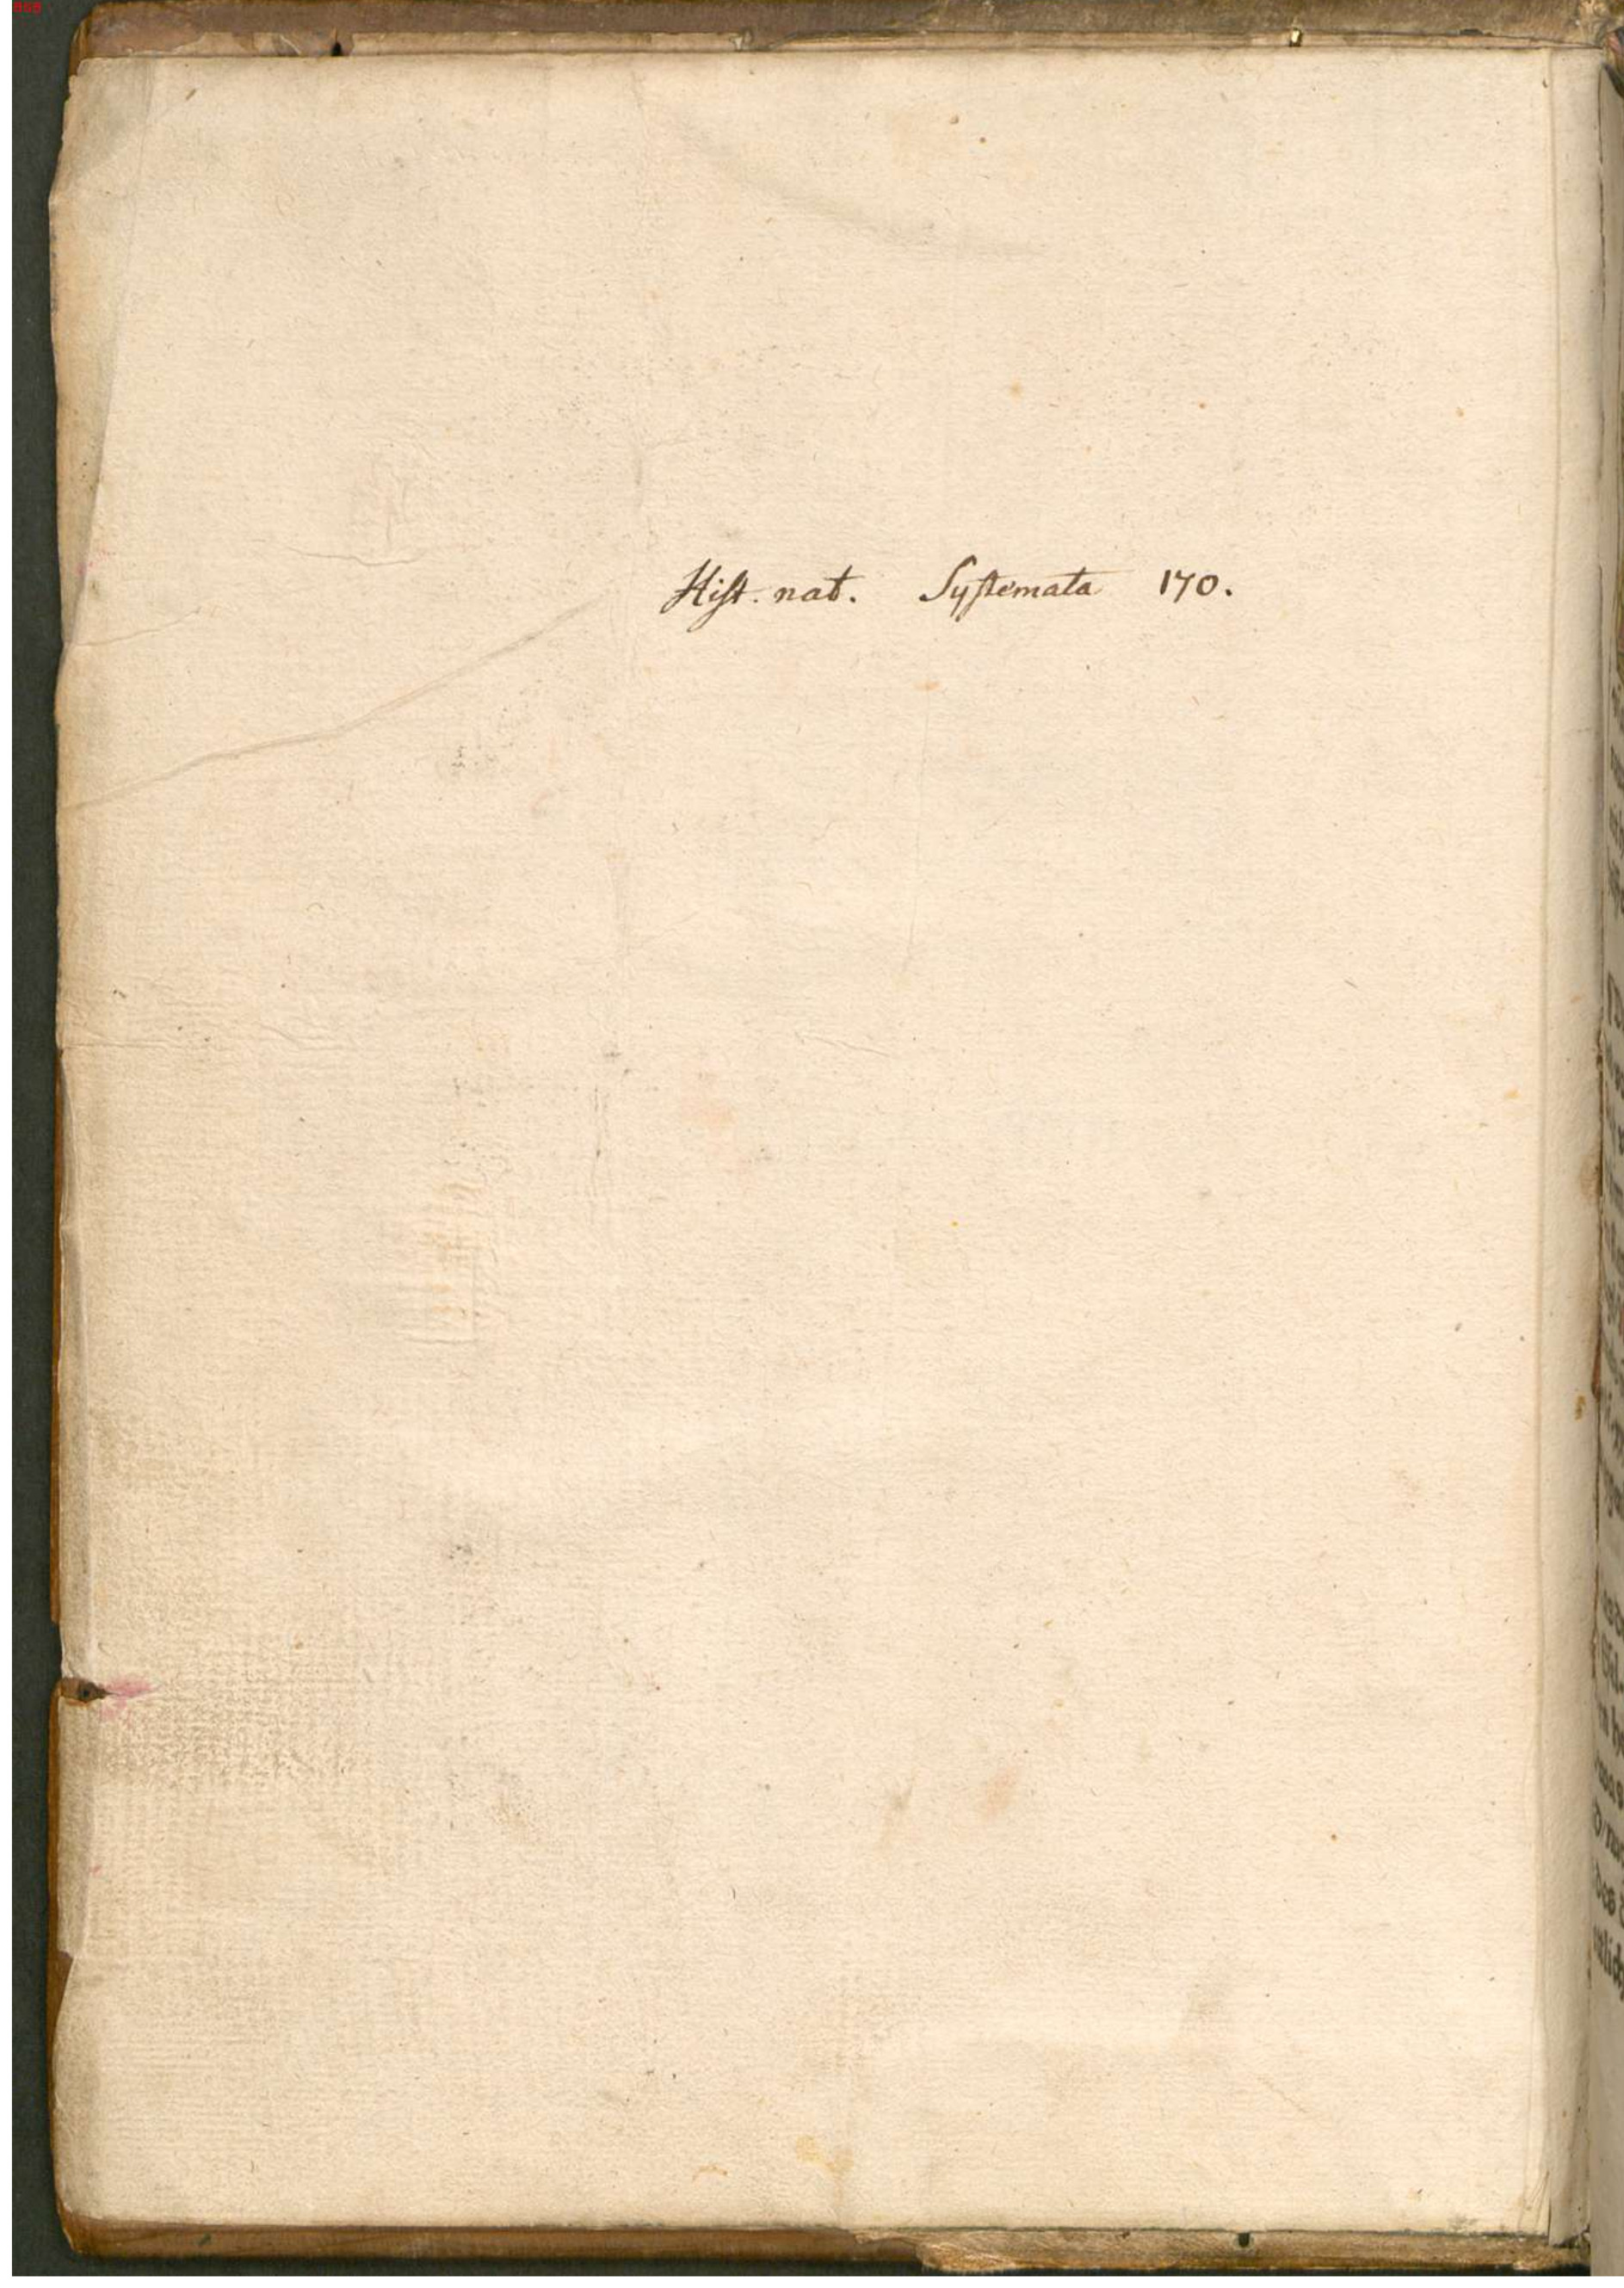 Hiſt. nat. Syſtemata 170.